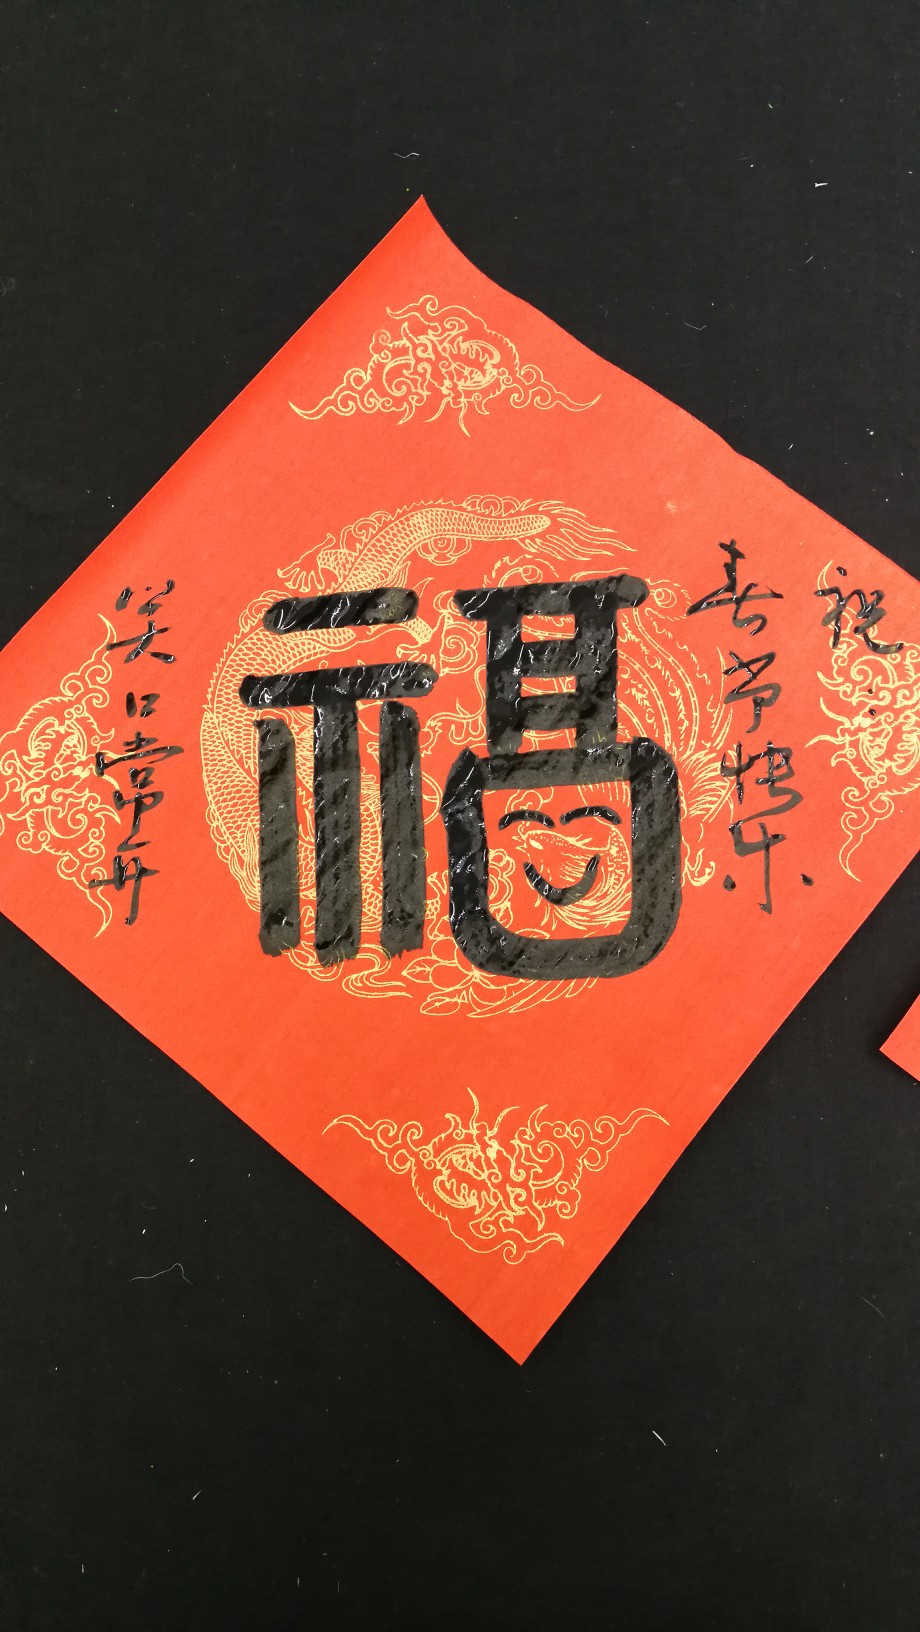 祝
春节快乐
福
笑口常开